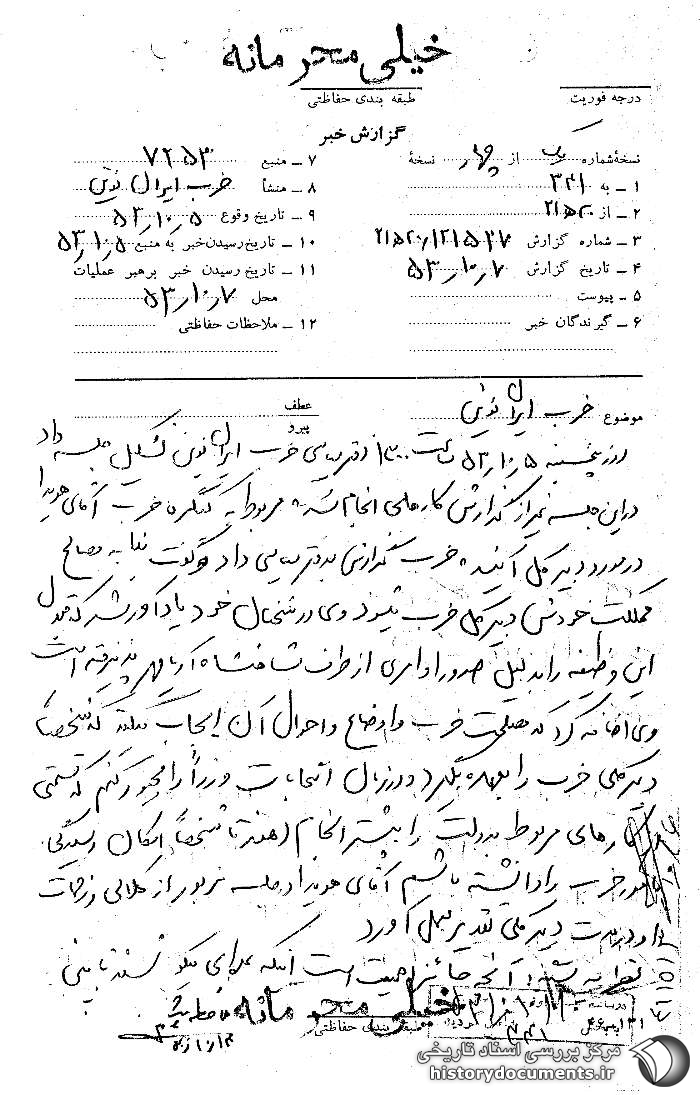 خیلی محرمانه
درجه فوریت
طبقه بندی حفاظتی
گزارش خبر
نسخهٔ شماره یک از چهار نسخهٔ
۱ ـ به ۳۴۱
۲ ـ از ۲۰ ه‍ ۲۱
۳ ـ شماره گزارش ۱۲۱۵۳۷/۲۰ ه‍ ۲۱
۴ ـ تاریخ گزارش ۷/۱۰/۵۳
۵ ـ پیوست
۶ ـ گیرندگان خبر
۷ ـ منبع ۷۲۵۳
۸ ـ منشأ حزب ایران نوین
۹ ـ تاریخ وقوع ۵/۱۰/۵۳
۱۰ ـ تاریخ رسیدن خبر به منبع ۵/۱۰/۵۳
۱۱ ـ تاریخ رسیدن خبر برهبر عملیات
محل ۷/۱۰/۵۳
۱۲ ـ ملاحظات حفاظتی
موضوع حزب ایران نوین
عطف
پیرو
روز پنجشنبه ۵/۱۰/۵۳ ساعت ۱۳۰۰ دفتر سیاسی حزب ایران نوین تشکیل جلسه داد
در این جلسه پس از گزارش کارهای انجام شده مربوط به کنگره حزب آقای هویدا
در مورد دبیر کل آینده حزب گزارش به دفتر سیاسی داد و گفت بنا به مصالح
مملکت خودش دبیر کل حزب میشود وی در سخنان خود یادآور شد که قبول
این وظیفه را بدلیل صدور اوامری از طرف شاهنشاه آریامهر پذیرفته است
وی اضافه کرد که مصلحت حزب و اوضاع و احوال آن ایجاب میکند که شخصاً
دبیر کلی حزب را بعهده بگیرد و در زمان انتخابات وزرا را مجبور کنم که قسمتی
کارهای مربوط بدولت را بیشتر انجام دهند تا شخصاً امکان رسیدگی
بامور حزب را داشته باشم آقای هویدا در جلسه مزبور از کلالی و زحمات
او در پست دبیر کلی تقدیر بعمل آورد
نظریه شنبه آنچه حائز اهمیت است اینکه
خیلی محرمانه
طبقه بندی حفاظتی
مرکز بررسی اسناد تاریخی
historydocuments.ir